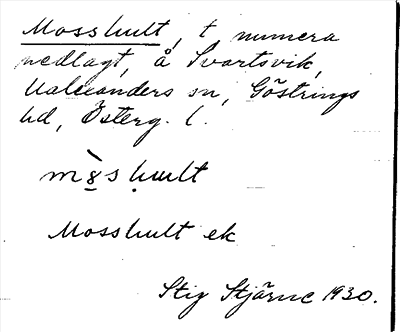 Mosshult, t, numera
nedlagt, å Svartsvik,
Valeanders sn, Göstrings
hd, Österg. l.
Mosshult ek
Stig Stjärne 1930.